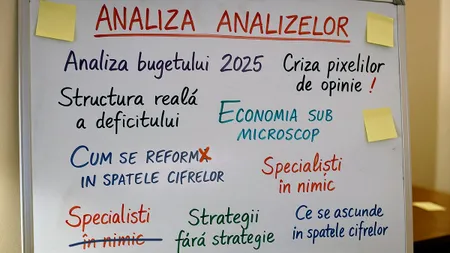 ANALIZA ANALIZELOR
Analiza bugetului 2025
Criza pixelilor
de opinie !
Structura reală
a deficitului
ECONOMIA SUB
MICROSCOP
CUM SE REFORMX
IN SPATELE CIFRELOR
Specialiști
în nimic
Specialisti
în nimic
Strategii
fára strategie
Ce se ascunde
in spatele cifrelor